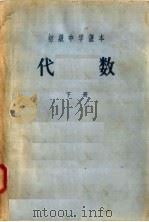 初级中学课本
代数
下册